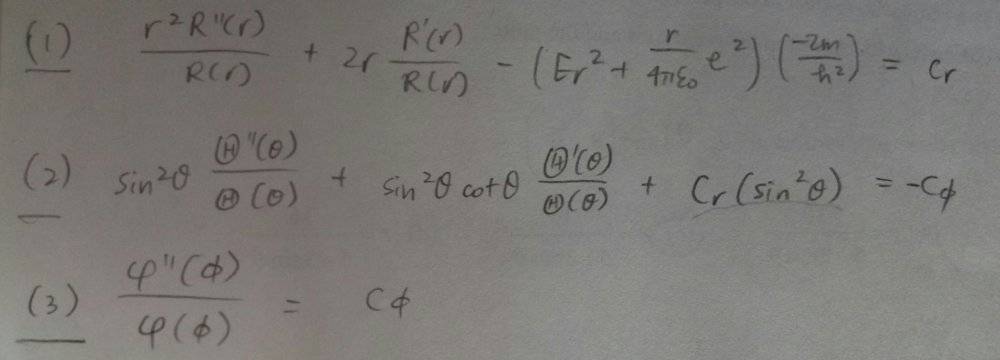 (1) r²R''(r)/R(r) + 2r R'(r)/R(r) - (Er² + r/4πε₀ e²)(-2m/ħ²) = Cr
(2) sin²θ Θ''(θ)/Θ(θ) + sin²θ cotθ Θ'(θ)/Θ(θ) + Cr(sin²θ) = -Cϕ
(3) φ''(ϕ)/φ(ϕ) = Cϕ